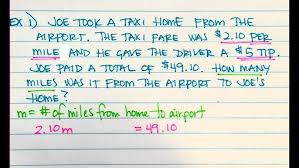 EX 1) JOE TOOK A TAXI HOME FROM THE
AIRPORT. THE TAXI FARE WAS $2.10 PER
MILE AND HE GAVE THE DRIVER A $5 TIP.
JOE PAID A TOTAL OF $49.10. HOW MANY
MILES WAS IT FROM THE AIRPORT TO JOE'S
HOME?
m = # of miles from home to airport
2.10m = 49.10